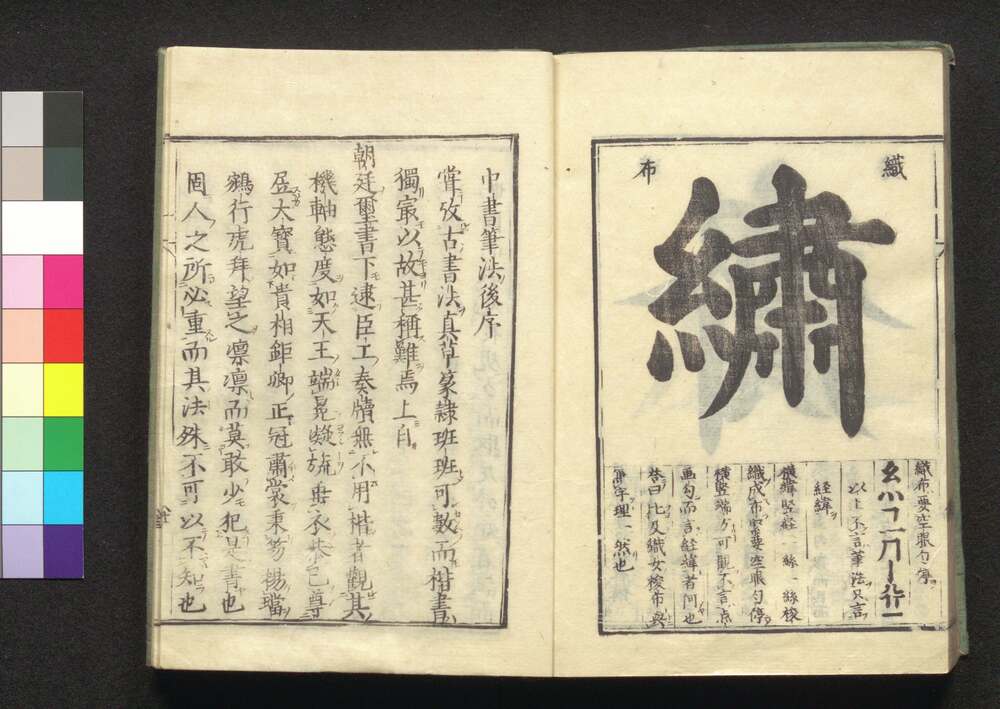 織
布
繡
織布要空眼勻停
以上不言筆法只言
経緯
橫緯竪経一絲一絲梭
織成布帛要空眼勻停
橫竪端方可觀不言点
画勾而言経緯者何也
答曰比及織女梭布與
字理一然也
中書筆法後序
嘗攷古書法真草篆隷班班可數而楷書
獨㝡以故甚稱難焉上自
朝廷璽書下逮臣工奏牘無不用楷者觀其
機軸態度如天王端冕凝旒垂衣恭己尊
居大寶如貴相鉅卿正冠肅裳秉笏揚璫
鵷行虎拜望之凛凛而莫敢少犯是書也
固人之所必重而其法殊不可以不知也